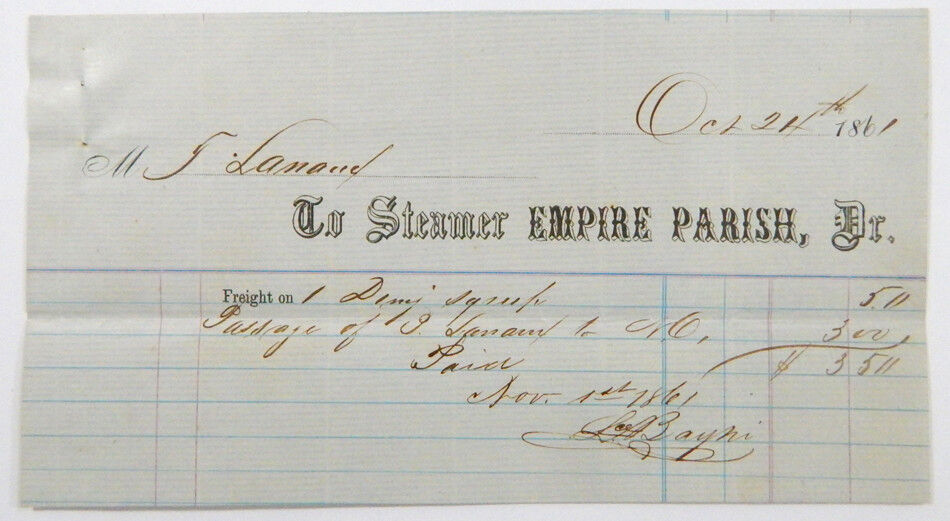 Oct 24th 1861
M T Lanaux
To Steamer EMPIRE PARISH, Dr.
Freight on 1 Demj syrup 50
Passage of T Lanaux to N.O, 3 00
Paid $ 3 50
Nov. 1st 1861